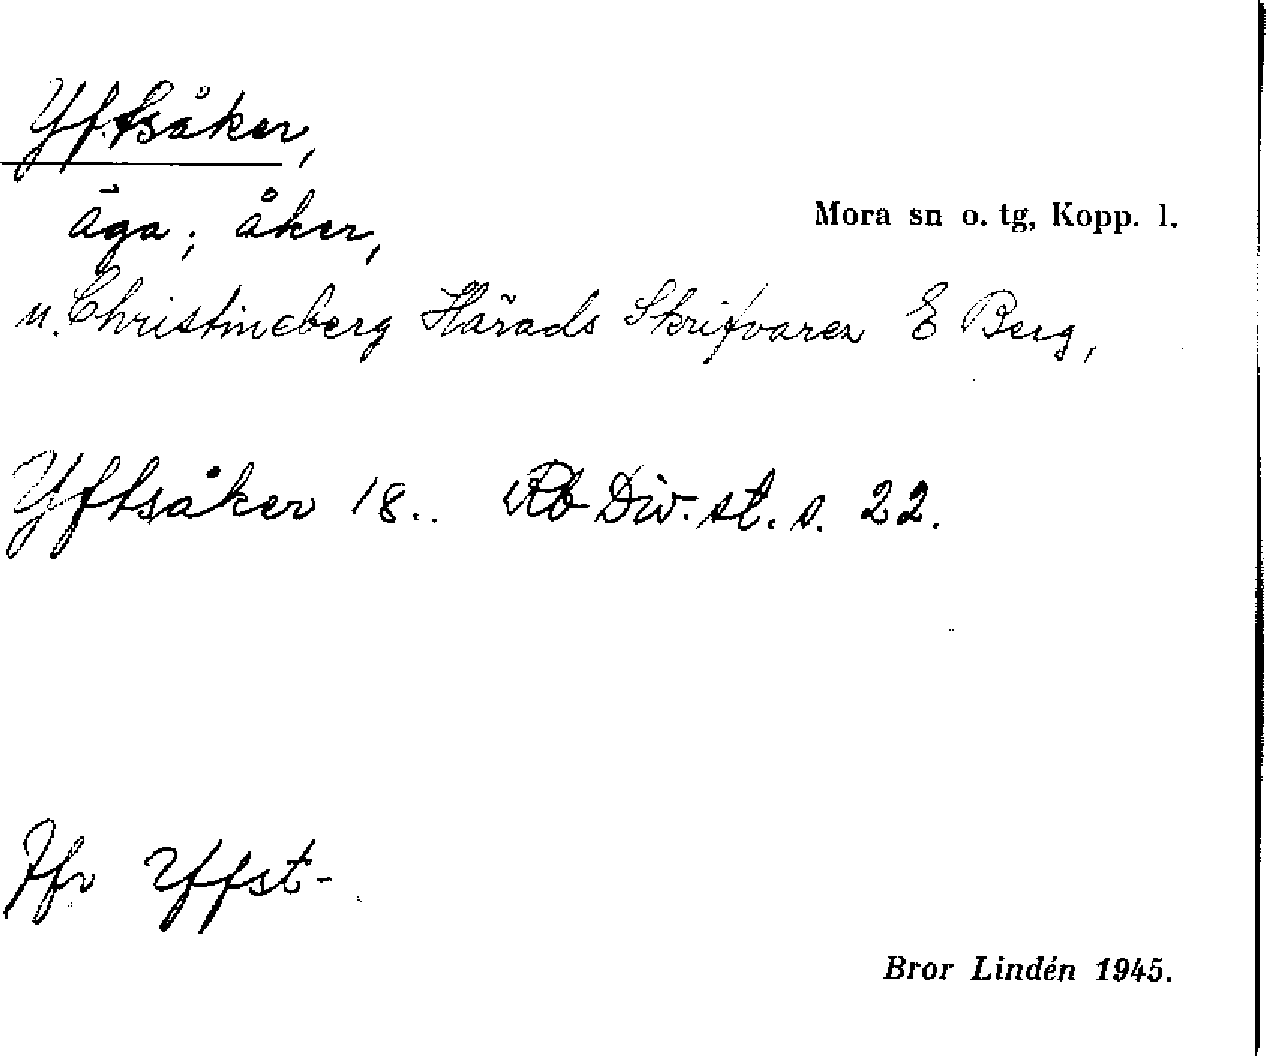 Yftsåker,
äga; åker,
Mora sn o. tg, Kopp. l.
u. Christineberg Härads Skrifvaren E Berg,
Yftsåker 18.. Rb Div. st. s. 22.
Jfr Yffst-
Bror Lindén 1945.